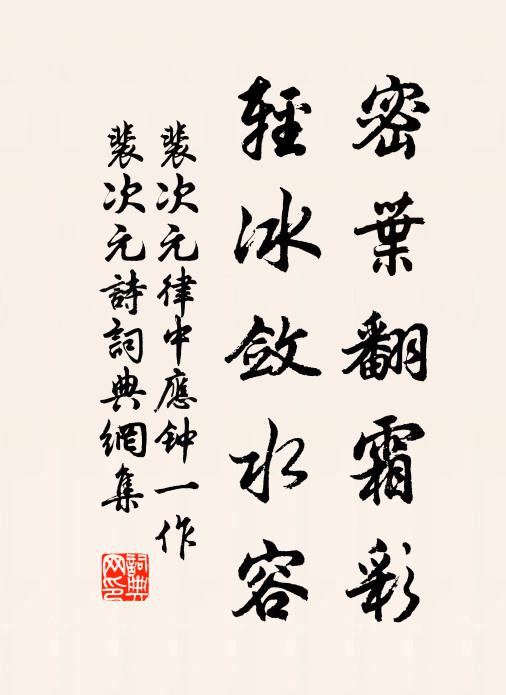 密葉翻霜彩
輕冰斂水容
裴次元律中應鈡一作
裴次元詩詞典網集
詞典网印